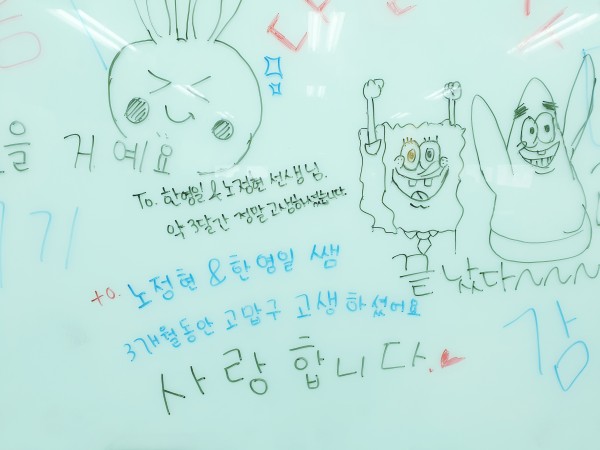 을 거 예요
To. 한영일 & 노정현 선생님.
약 3달간 정말 고생하셨습니다.
끝났다~~~
to. 노정현 & 한영일 쌤
3개월동안 고맙구 고생하셨어요
감
사랑합니다.